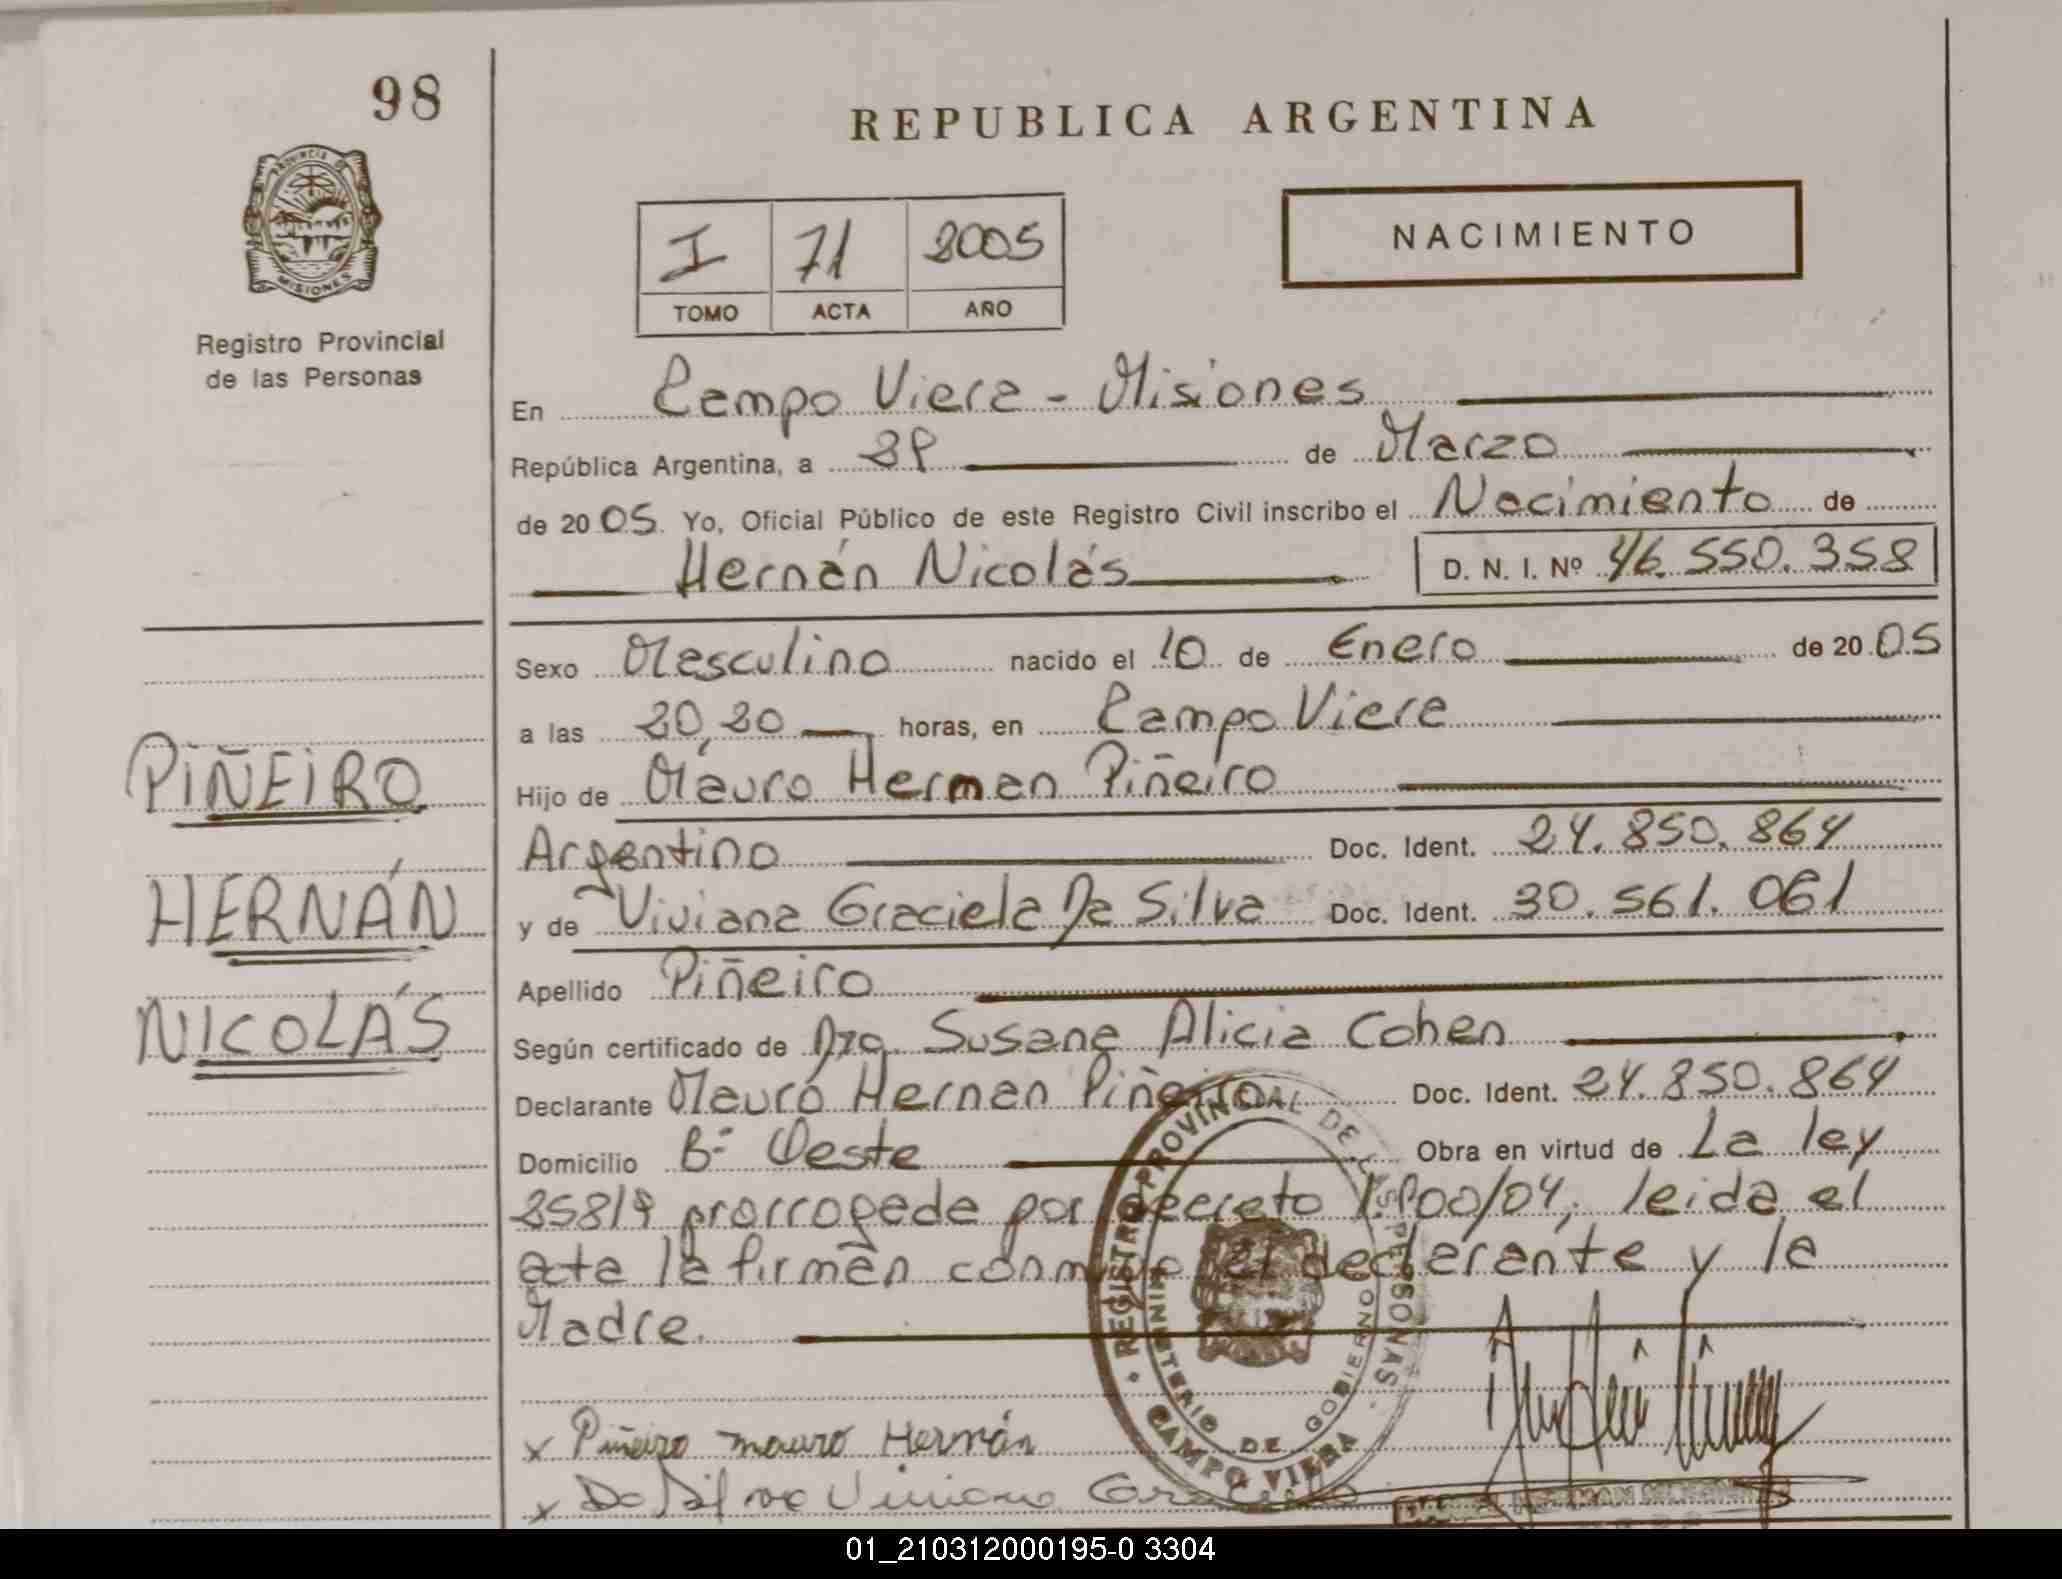 98
REPUBLICA ARGENTINA
PROVINCIA DE
MISIONES
I 71 2005
TOMO ACTA AÑO
NACIMIENTO
Registro Provincial
de las Personas
En Campo Viera - Misiones
República Argentina, a 29 de Marzo
de 2005. Yo, Oficial Público de este Registro Civil inscribo el Nacimiento de
Hernán Nicolás D. N. I. Nº 46.550.358
Sexo Masculino nacido el 10 de Enero de 2005
a las 20,20 horas, en Campo Viera
PIÑEIRO
Hijo de Mauro Hernan Piñeiro
Argentino Doc. Ident. 24.850.864
HERNÁN
y de Viviana Graciela Da Silva Doc. Ident. 30.561.061
Apellido Piñeiro
NICOLÁS
Según certificado de Dra. Susana Alicia Cohen
Declarante Mauro Hernan Piñeiro Doc. Ident. 24.850.864
Domicilio Bº Oeste Obra en virtud de La ley
25819 prorrogada por decreto 1.900/04; leida el
acta la firman conmigo el declarante y la
Madre.
REGISTRO PROVINCIAL DE LAS PERSONAS
MINISTERIO DE GOBIERNO
CAMPO VIERA
x Piñeiro mauro Hernán
x Da Silva Viviana
01_210312000195-0 3304